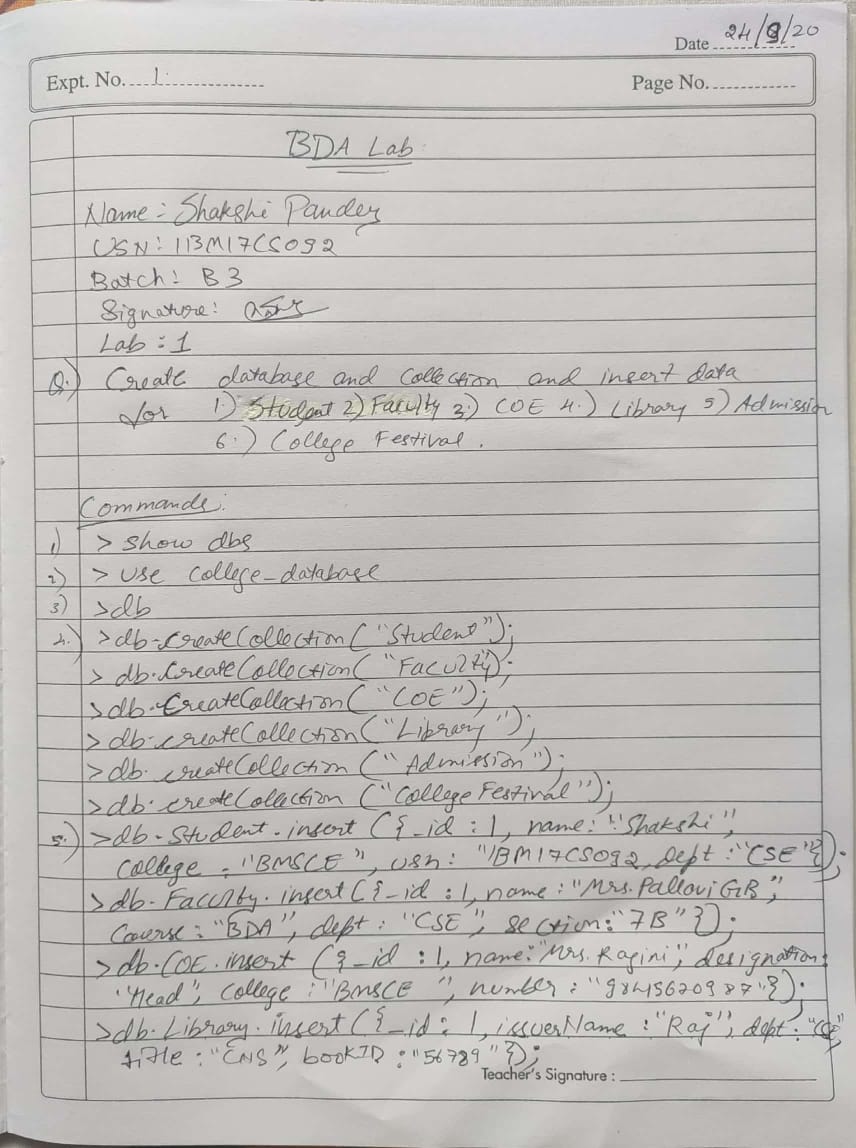 Date 24/9/20
Expt. No. 1.
Page No.
BDA Lab
Name : Shakshi Pandey
USN : 1BM17CS092
Batch : B3
Signature :
Lab : 1
Q.) Create database and collection and insert data
for 1.) Student 2) Faculty 3.) COE 4.) Library 5) Admission
6.) College Festival.
Commands:
1) > show dbs
2) > use college_database
3) > db
4.) > db.createCollection("Student");
> db.createCollection("Faculty");
> db.createCollection("COE");
> db.createCollection("Library");
> db.createCollection("Admission");
> db.createCollection("College Festival");
5.) > db.Student.insert({_id : 1, name: "Shakshi",
college : "BMSCE", usn: "1BM17CS092, dept : "CSE"});
> db.Faculty.insert({_id : 1, name : "Mrs. Pallavi GB",
Course : "BDA", dept : "CSE", section: "7B"});
> db.COE.insert({_id : 1, name: "Mrs. Ragini", designation:
"Head", College : "BMSCE", number : "9845620987"});
> db.Library.insert({_id : 1, issuerName : "Raj", dept :
title : "CNS", bookID : "56789"});
Teacher's Signature :